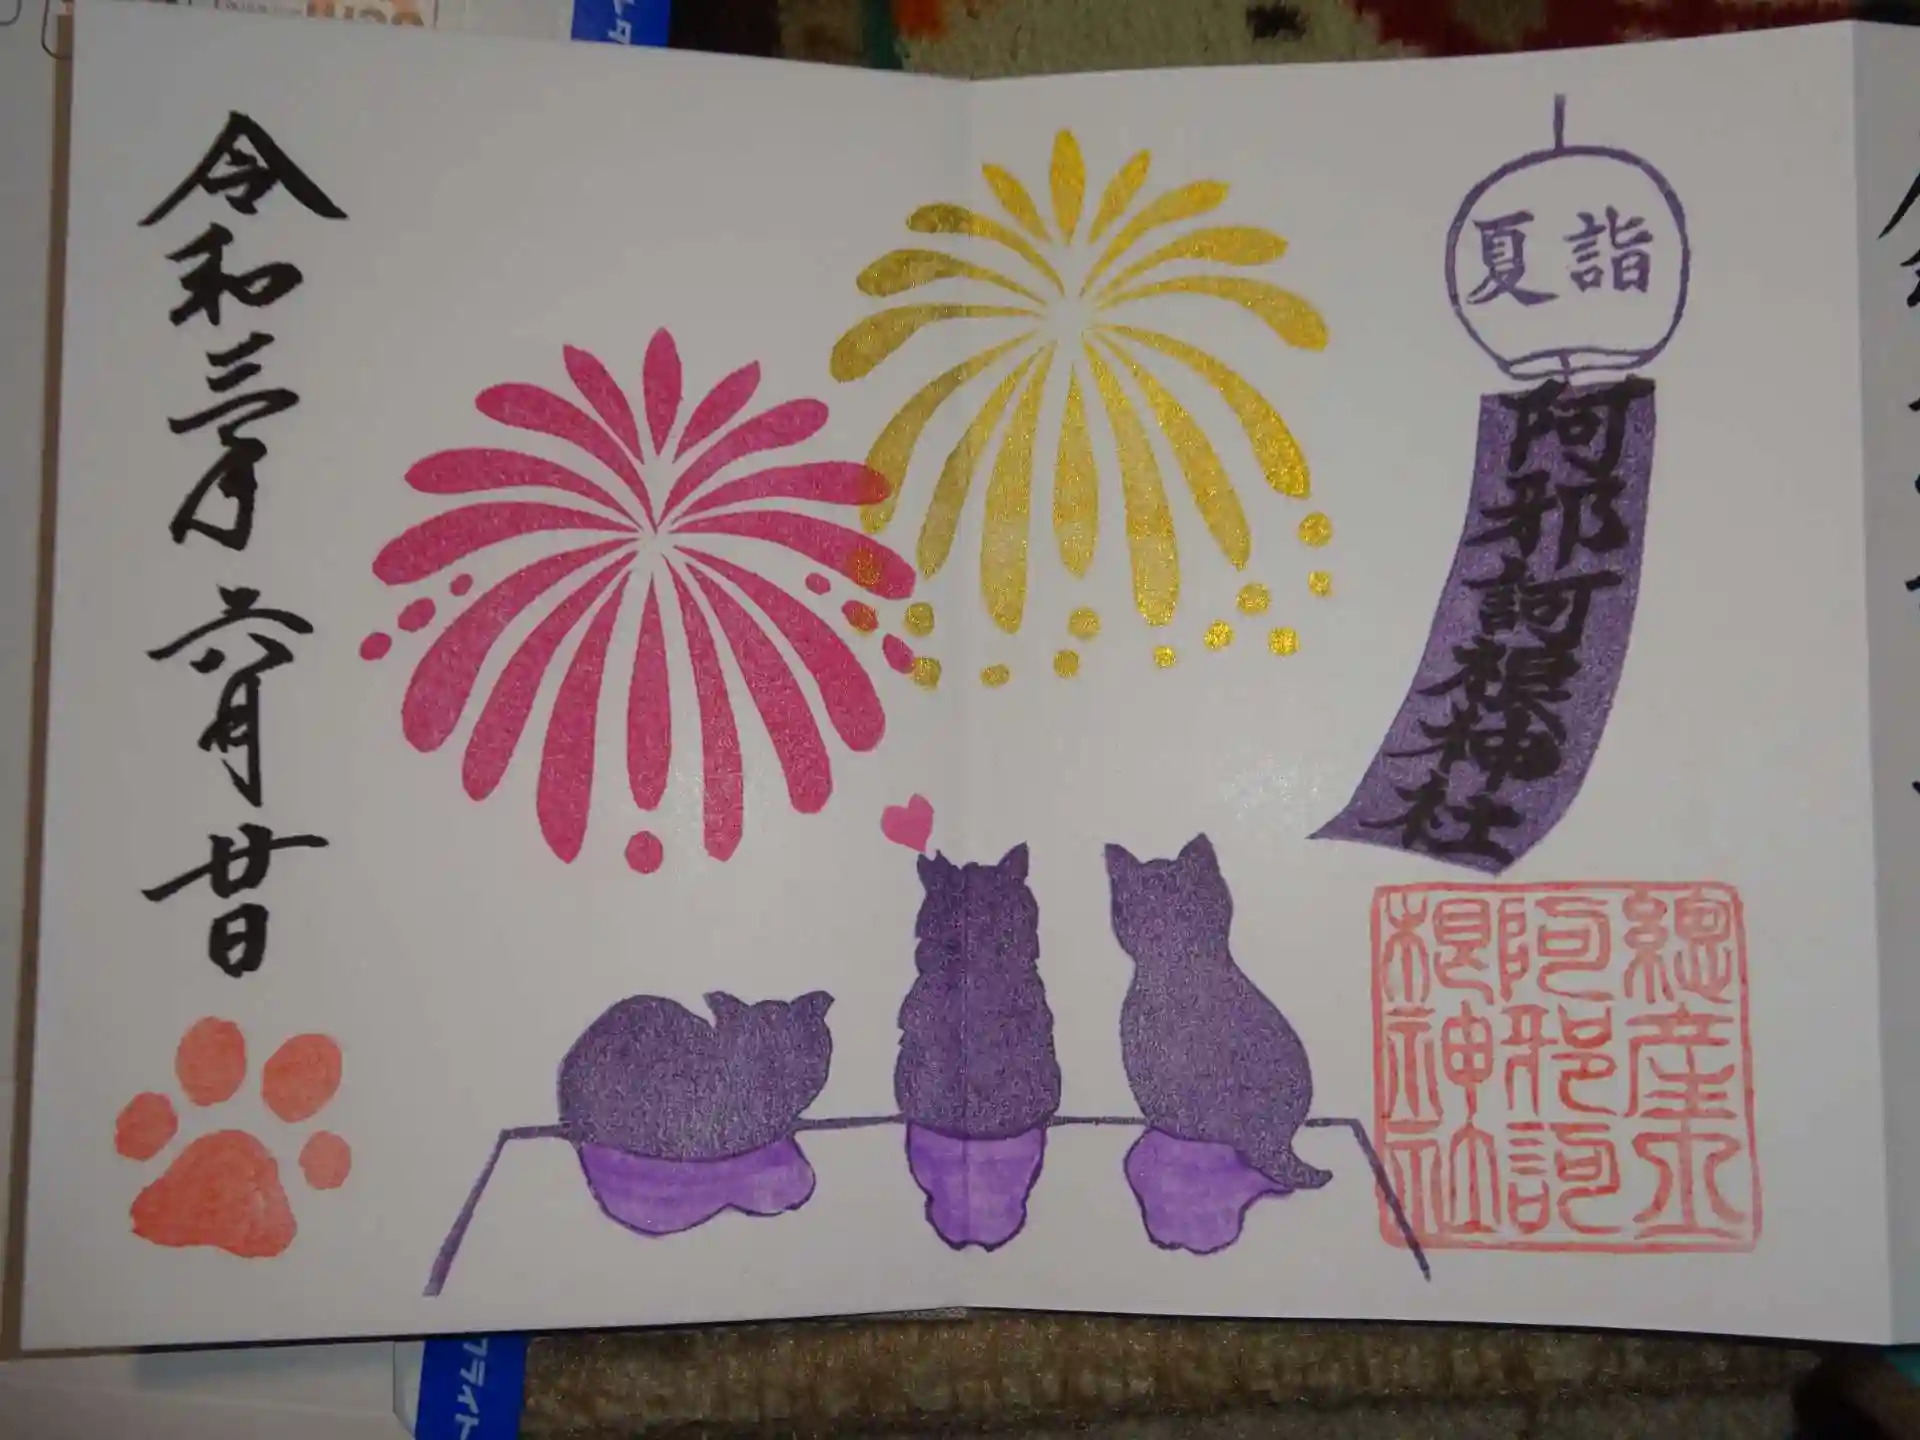 夏詣
阿邪訶根神社
總産土
阿邪訶
根神社
令和三年六月廿日
フライト